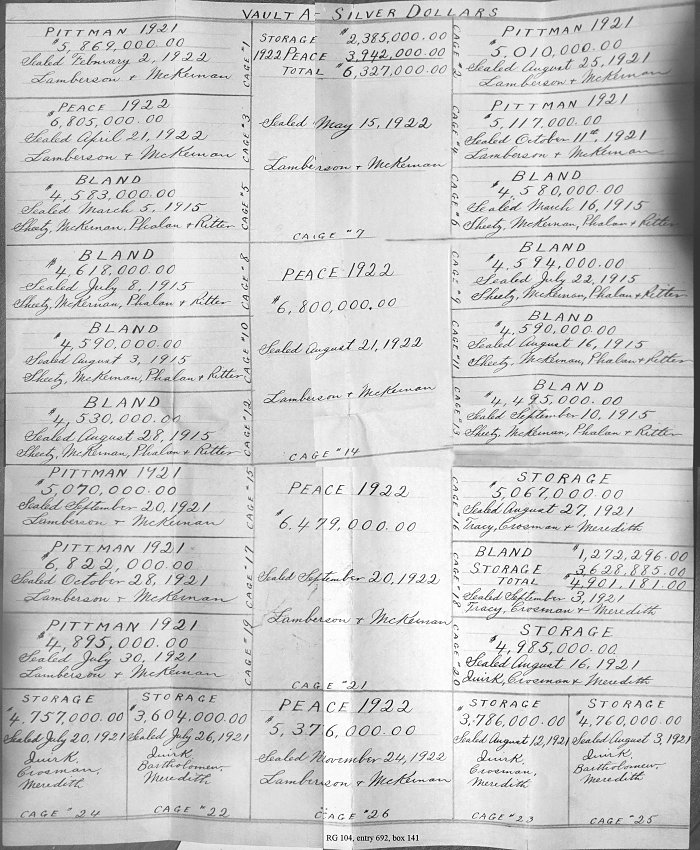 VAULT A - SILVER DOLLARS
PITTMAN 1921
$5,869,000.00
Sealed February 2, 1922
Lamberson & McKernan
CAGE #1
STORAGE $2,385,000.00
1922 PEACE 3,942,000.00
TOTAL $6,327,000.00
Sealed May 15, 1922
Lamberson & McKernan
CAGE #7
CAGE #2
PITTMAN 1921
$5,010,000.00
Sealed August 25, 1921
Lamberson & McKernan
PEACE 1922
$6,805,000.00
Sealed April 21, 1922
Lamberson & McKernan
CAGE #3
CAGE #4
PITTMAN 1921
$5,117,000.00
Sealed October 11th, 1921
Lamberson & McKernan
BLAND
$4,583,000.00
Sealed March 5, 1915
Sheetz, McKernan, Phalan & Ritter
CAGE #5
CAGE #6
BLAND
$4,580,000.00
Sealed March 16, 1915
Sheetz, McKernan, Phalan & Ritter
BLAND
$4,618,000.00
Sealed July 8, 1915
Sheetz, McKernan, Phalan & Ritter
CAGE #8
PEACE 1922
$6,800,000.00
Sealed August 21, 1922
Lamberson & McKernan
CAGE #14
CAGE #9
BLAND
$4,594,000.00
Sealed July 22, 1915
Sheetz, McKernan, Phalan & Ritter
BLAND
$4,590,000.00
Sealed August 3, 1915
Sheetz, McKernan, Phalan & Ritter
CAGE #10
CAGE #11
BLAND
$4,590,000.00
Sealed August 16, 1915
Sheetz, McKernan, Phalan & Ritter
BLAND
$4,530,000.00
Sealed August 28, 1915
Sheetz, McKernan, Phalan & Ritter
CAGE #12
CAGE #13
BLAND
$4,495,000.00
Sealed September 10, 1915
Sheetz, McKernan, Phalan & Ritter
PITTMAN 1921
$5,070,000.00
Sealed September 20, 1921
Lamberson & McKernan
CAGE #15
PEACE 1922
$6,479,000.00
Sealed September 20, 1922
Lamberson & McKernan
CAGE #21
CAGE #16
STORAGE
$5,067,000.00
Sealed August 27, 1921
Tracy, Crosman & Meredith
PITTMAN 1921
$6,822,000.00
Sealed October 28, 1921
Lamberson & McKernan
CAGE #17
CAGE #18
BLAND $1,272,296.00
STORAGE 3,628,885.00
TOTAL $4,901,181.00
Sealed September 3, 1921
Tracy, Crosman & Meredith
PITTMAN 1921
$4,895,000.00
Sealed July 30, 1921
Lamberson & McKernan
CAGE #19
CAGE #20
STORAGE
$4,985,000.00
Sealed August 16, 1921
Quirk, Crosman & Meredith
STORAGE
$4,757,000.00
Sealed July 20, 1921
Quirk,
Crosman,
Meredith
CAGE #24
STORAGE
$3,604,000.00
Sealed July 26, 1921
Quirk,
Bartholomew,
Meredith
CAGE #22
PEACE 1922
$5,376,000.00
Sealed November 24, 1922
Lamberson & McKernan
CAGE #26
STORAGE
$3,786,000.00
Sealed August 12, 1921
Quirk,
Crosman,
Meredith
CAGE #23
STORAGE
$4,760,000.00
Sealed August 3, 1921
Quirk,
Bartholomew,
Meredith
CAGE #25
RG 104, entry 692, box 141